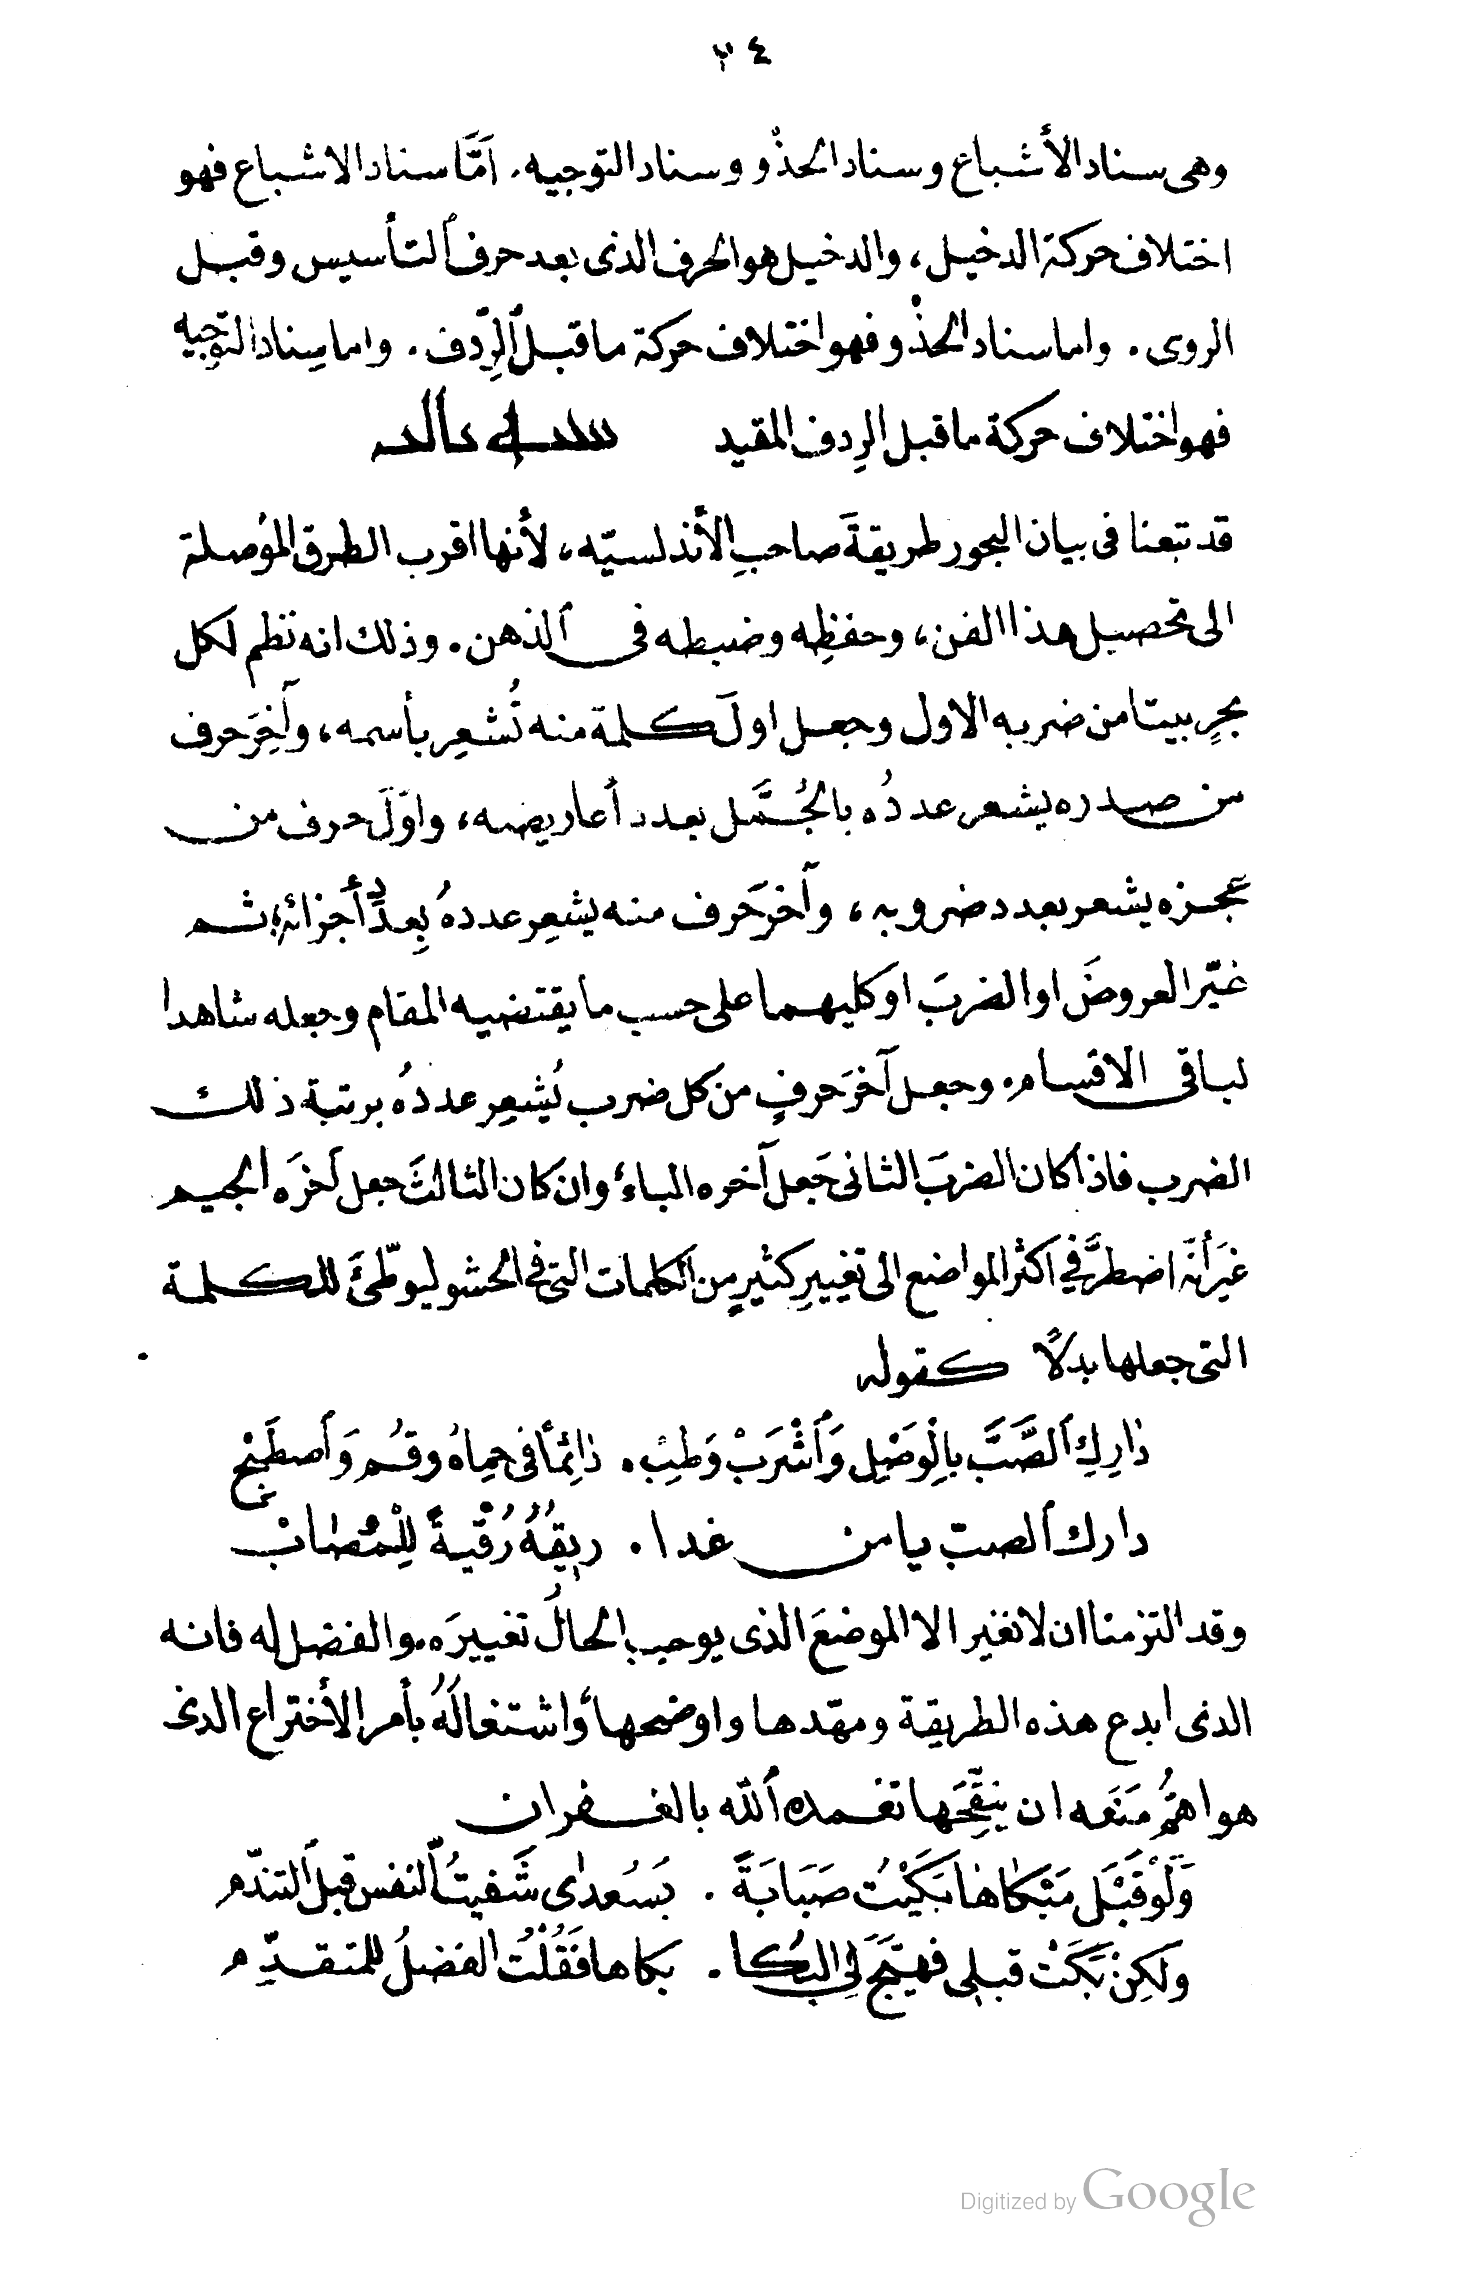 ٣٤
وهى سناد الأشباع وسناد الحذْو وسناد التوجيه. امَّا سناد الاشباع فهو
اختلاف حركة الدخيل، والدخيل هو الحرف الذى بعد حرف ٱلتأسيس وقبل
الروى. واما سناد الحذْو فهو اختلاف حركة ما قبل ٱلرِّدف. واما سِناد التوجيه
فهو اختلاف حركة ما قبل الرِدف المقيد
قد تبعنا فى بيان البحور طريقةَ صاحبِ الأندلسيّه، لأنها اقرب الطرق المُوصلة
الى تحصيل هذا الفن، وحفظِه وضبطه فى ٱلذهن. وذلك انه نظم لكل
بحرٍ بيتا من ضربه الاول وجعل اولَ كلمة منه تُشعِر بأسمه، وآخِرَ حرف
من صدره يشعر عددُه بالجُمَّل بعدد أعاريضه، واوّلَ حرف من
عجزه يشعر بعدد ضروبه، وآخرَ حَرف منه يشعِر عددهُ بِعدِّ أجزائه؛ ثم
غيّر العروضَ او الضربَ او كليهما على حسب ما يقتضيه المقام وجعله شاهدا
لباقى الاقسام. وجعل آخرَ حرفٍ من كل ضرب يُشعِر عددُه برتبة ذلك
الضرب فاذا كان الضربَ الثانى جَعل آخره الباءَ وان كان الثالثَ جعل آخرَه الجيم
غيَر أنّه اضطرَّ فى اكثر المواضع الى تغييرِ كثيرٍ من الكلمات التى فى الحشو ليوطّئَ للكلمة
التى جعلها بدلًا كقوله
دٰارِكِ ٱلصَّبَّ بالِوَصْلِ وَٱشْرَبْ وَطِبْ. دٰائِمًا فى حِماهُ وقُم وَٱصطَبِحْ
دارك ٱلصبّ يا من غدا. ريقُهُ رُقْيةً لِلْمُصٰابْ
وقد التزمنا ان لا نغير الا الموضعَ الذى يوجب الحالُ تغييرَه. والفضل له فانه
الذى ابدع هذه الطريقة ومهّدها واوضحها واشتغالُهُ بأمر الأختراع الذى
هو اهمُّ مَنَعه ان ينقِّحَها تغمده ٱللّه بالغفران
وَلَوْ قَبْلَ مَبْكاهٰا بَكَيْتُ صَبَابَةً. بَسُعدىٰ شَفيتُ ٱلنفس قبل ٱلتندّم
ولَكِنْ بَكَتْ قبلى فهيَّجَ لِى البُكا. بكاها فَقُلْتُ الفضلُ للمتقدِّم
Digitized by Google